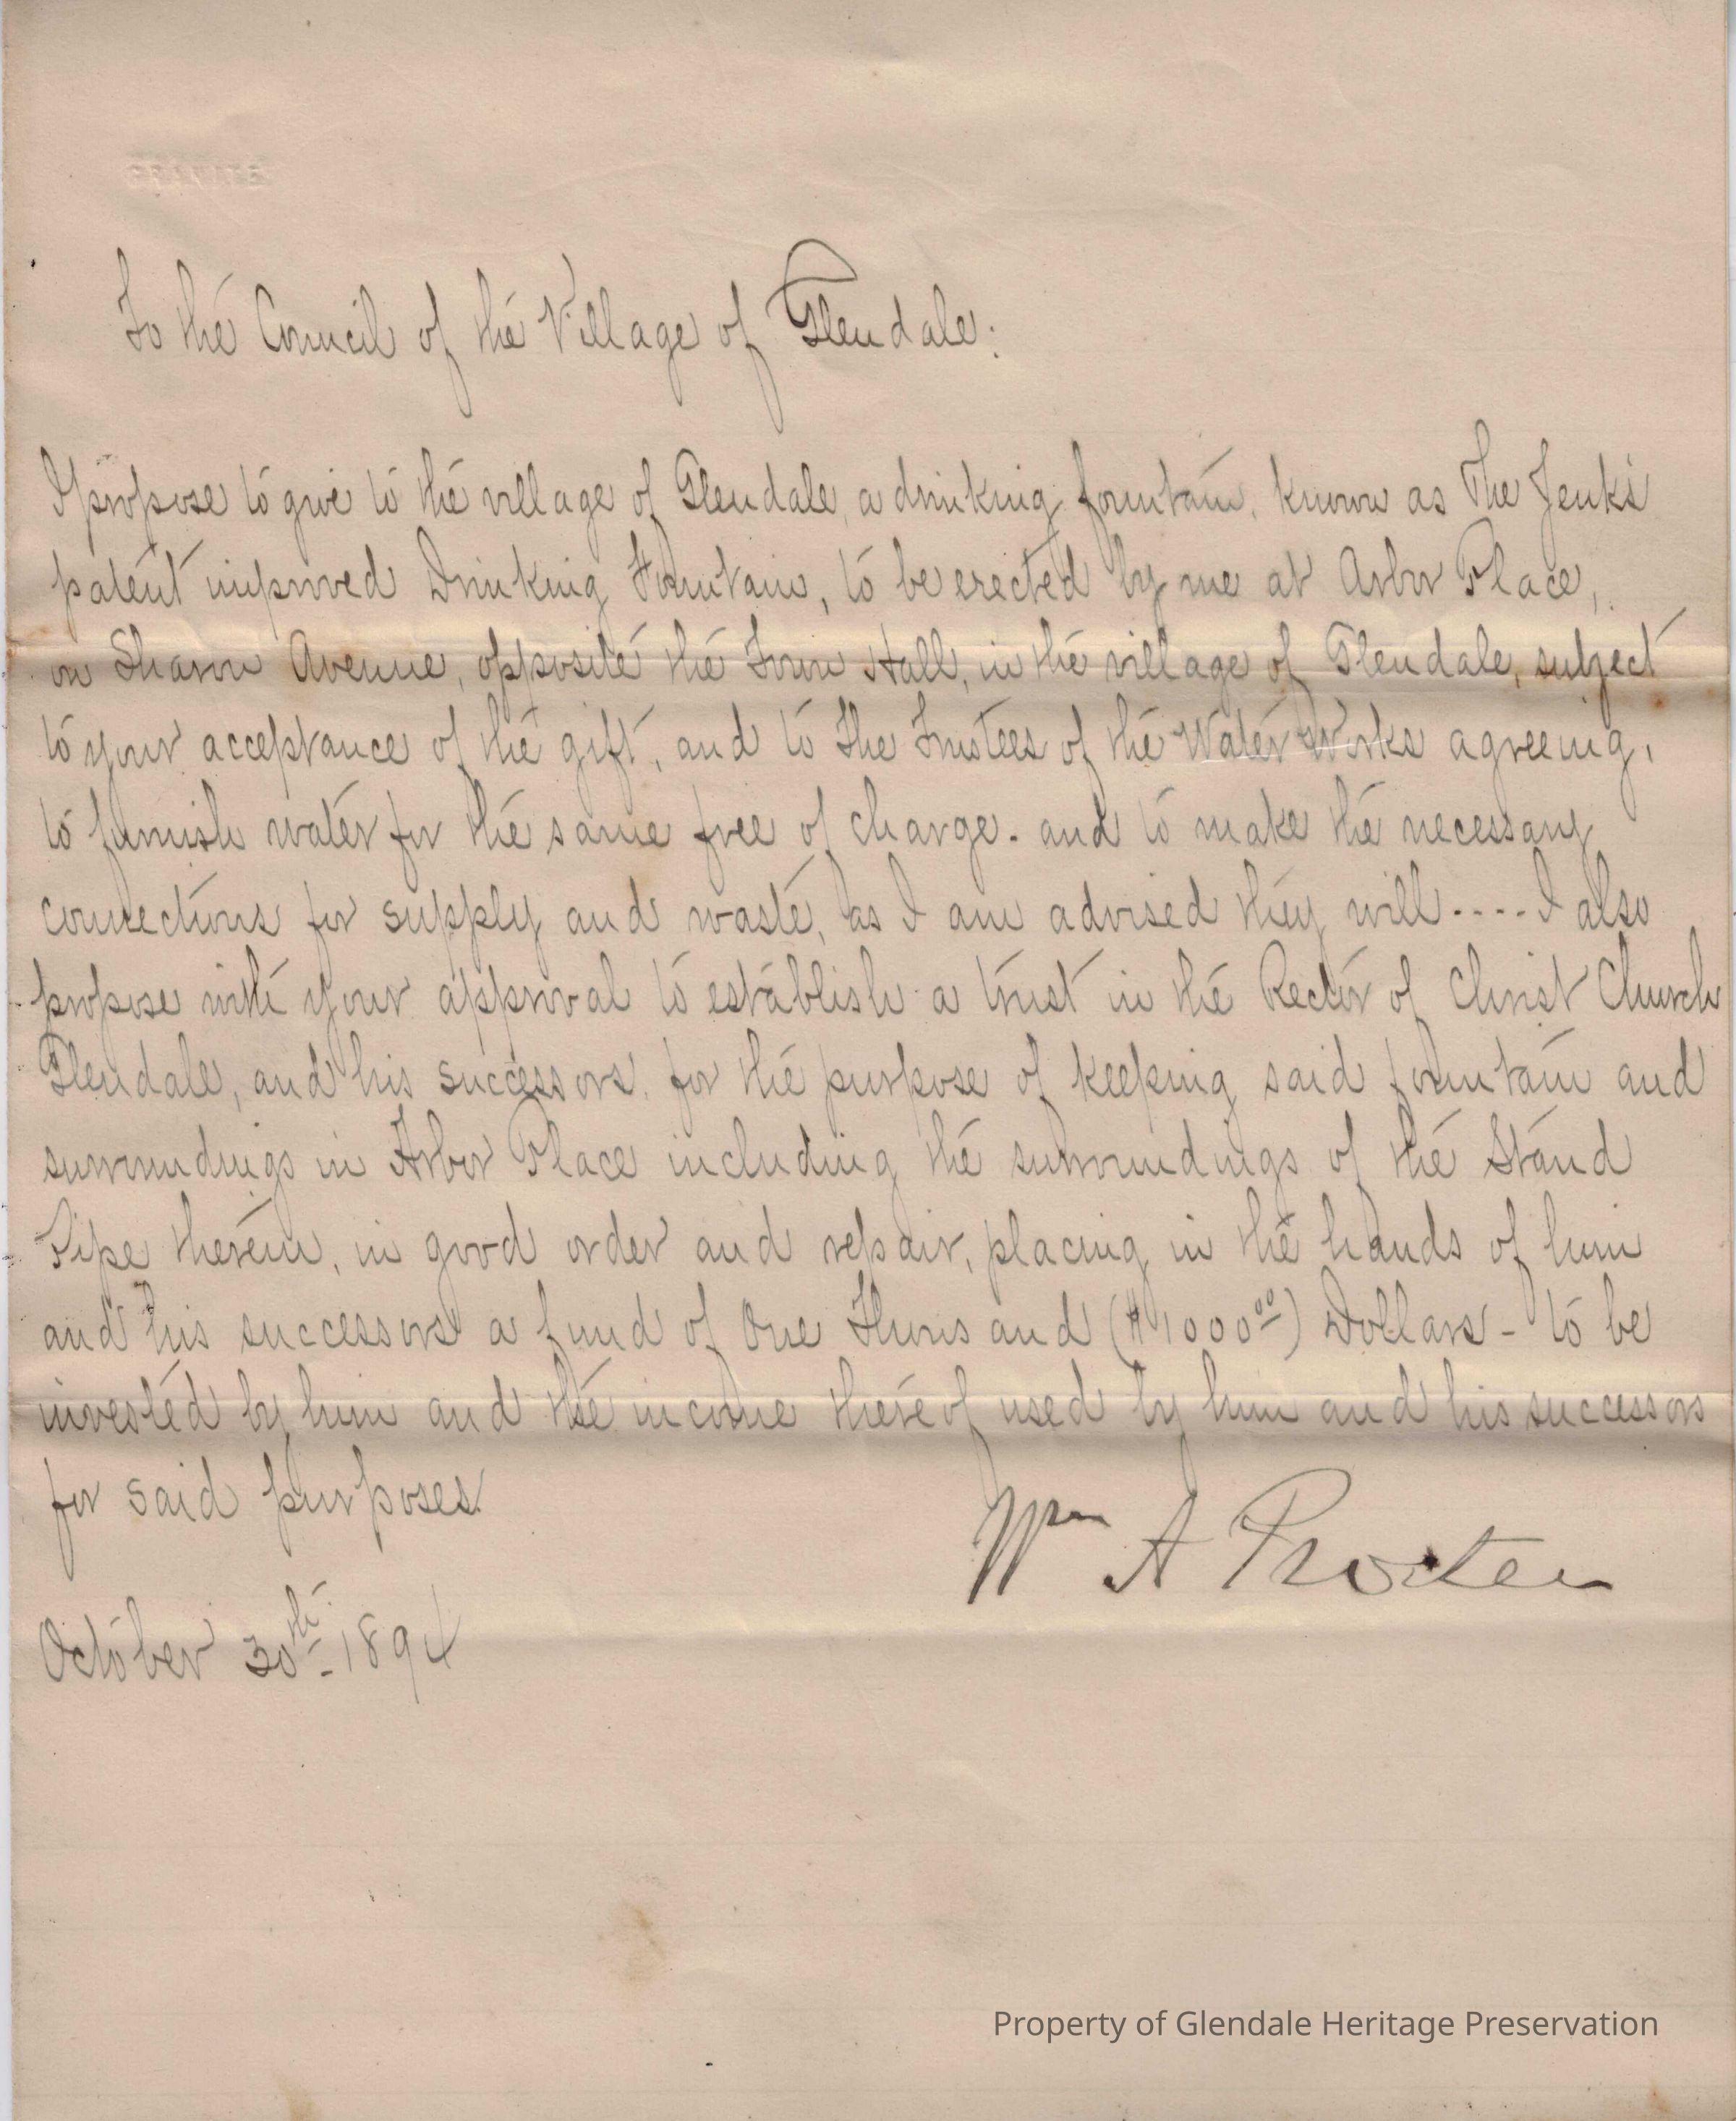 To the Council of the Village of Glendale:
I propose to give to the village of Glendale, a drinking fountain, known as The Jenks
patent improved Drinking Fountain, to be erected by me at Arbor Place,
on Sharon Avenue, opposite the Town Hall, in the village of Glendale, subject
to your acceptance of the gift, and to the Trustees of the Water Works agreeing,
to furnish water for the same free of charge. and to make the necessary
connections for supply and waste, as I am advised they will ---- I also
propose with your approval to establish a trust in the Rector of Christ Church
Glendale, and his successors, for the purpose of keeping said fountain and
surroundings in Arbor Place including the surroundings of the Stand
Pipe therein, in good order and repair, placing in the hands of him
and his successors a fund of One Thousand ($1000⁰⁰) Dollars - to be
invested by him and the income thereof used by him and his successors
for said purposes.
Wm A Procter
October 30th 1894
Property of Glendale Heritage Preservation